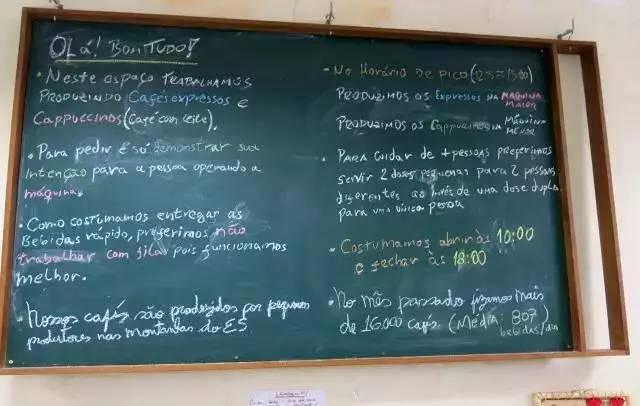 OLá! BOM TUDO?
• Neste espaço TRABALHAMOS
PRODUZINDO Cafés expressos e
CAPPUCCINOS (Café com leite).
• Para pedir é só demonstrar sua
intenção para a pessoa operando a
máquina.
• Como costumamos entregar as
Bebidas rápido, preferimos não
trabalhar com filas pois funcionamos
melhor.
• Nossos cafés são produzidos por pequenos
produtores nas montanhas do ES
- No Horário DE PICO
PRODUZIMOS OS Expressos NA MÁQUINA
MAIOR
PRODUZIMOS OS Cappuccinos NA MÁQUINA
MENOR
• PARA cuidar de + pessoas preferimos
servir 2 doses pequenas para 2 pessoas
diferentes ao invés de uma dose dupla
para uma única pessoa
- Costumamos abrir às 10:00
e fechar às 18:00
• No mês passado fizemos mais
de 16.000 cafés. (Média: 807
bebidas/dia